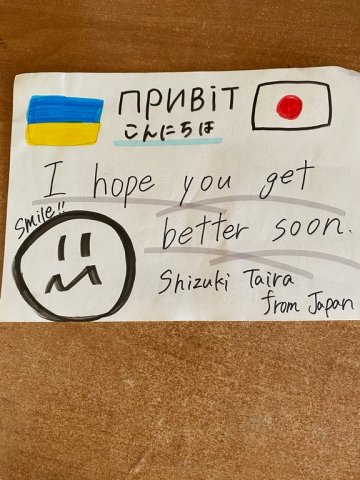 ПРИВіТ
こんにちは
I hope you get
smile!!
better soon.
Shizuki Taira
from Japan